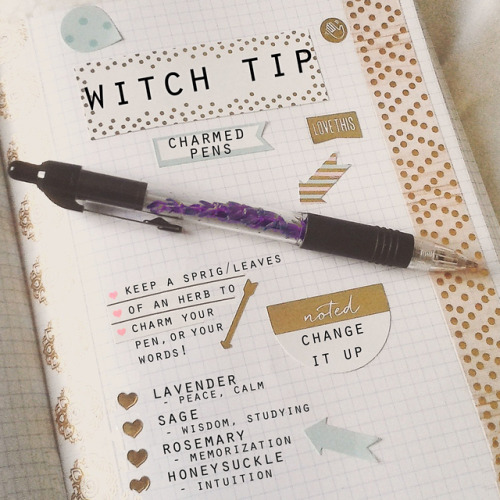 WITCH TIP
LOVE THIS
CHARMED
PENS
KEEP A SPRIG/LEAVES
OF AN HERB TO
CHARM YOUR
PEN, OR YOUR
WORDS!
noted
CHANGE
IT UP
LAVENDER
- PEACE, CALM
SAGE
- WISDOM, STUDYING
ROSEMARY
- MEMORIZATION
HONEYSUCKLE
- INTUITION